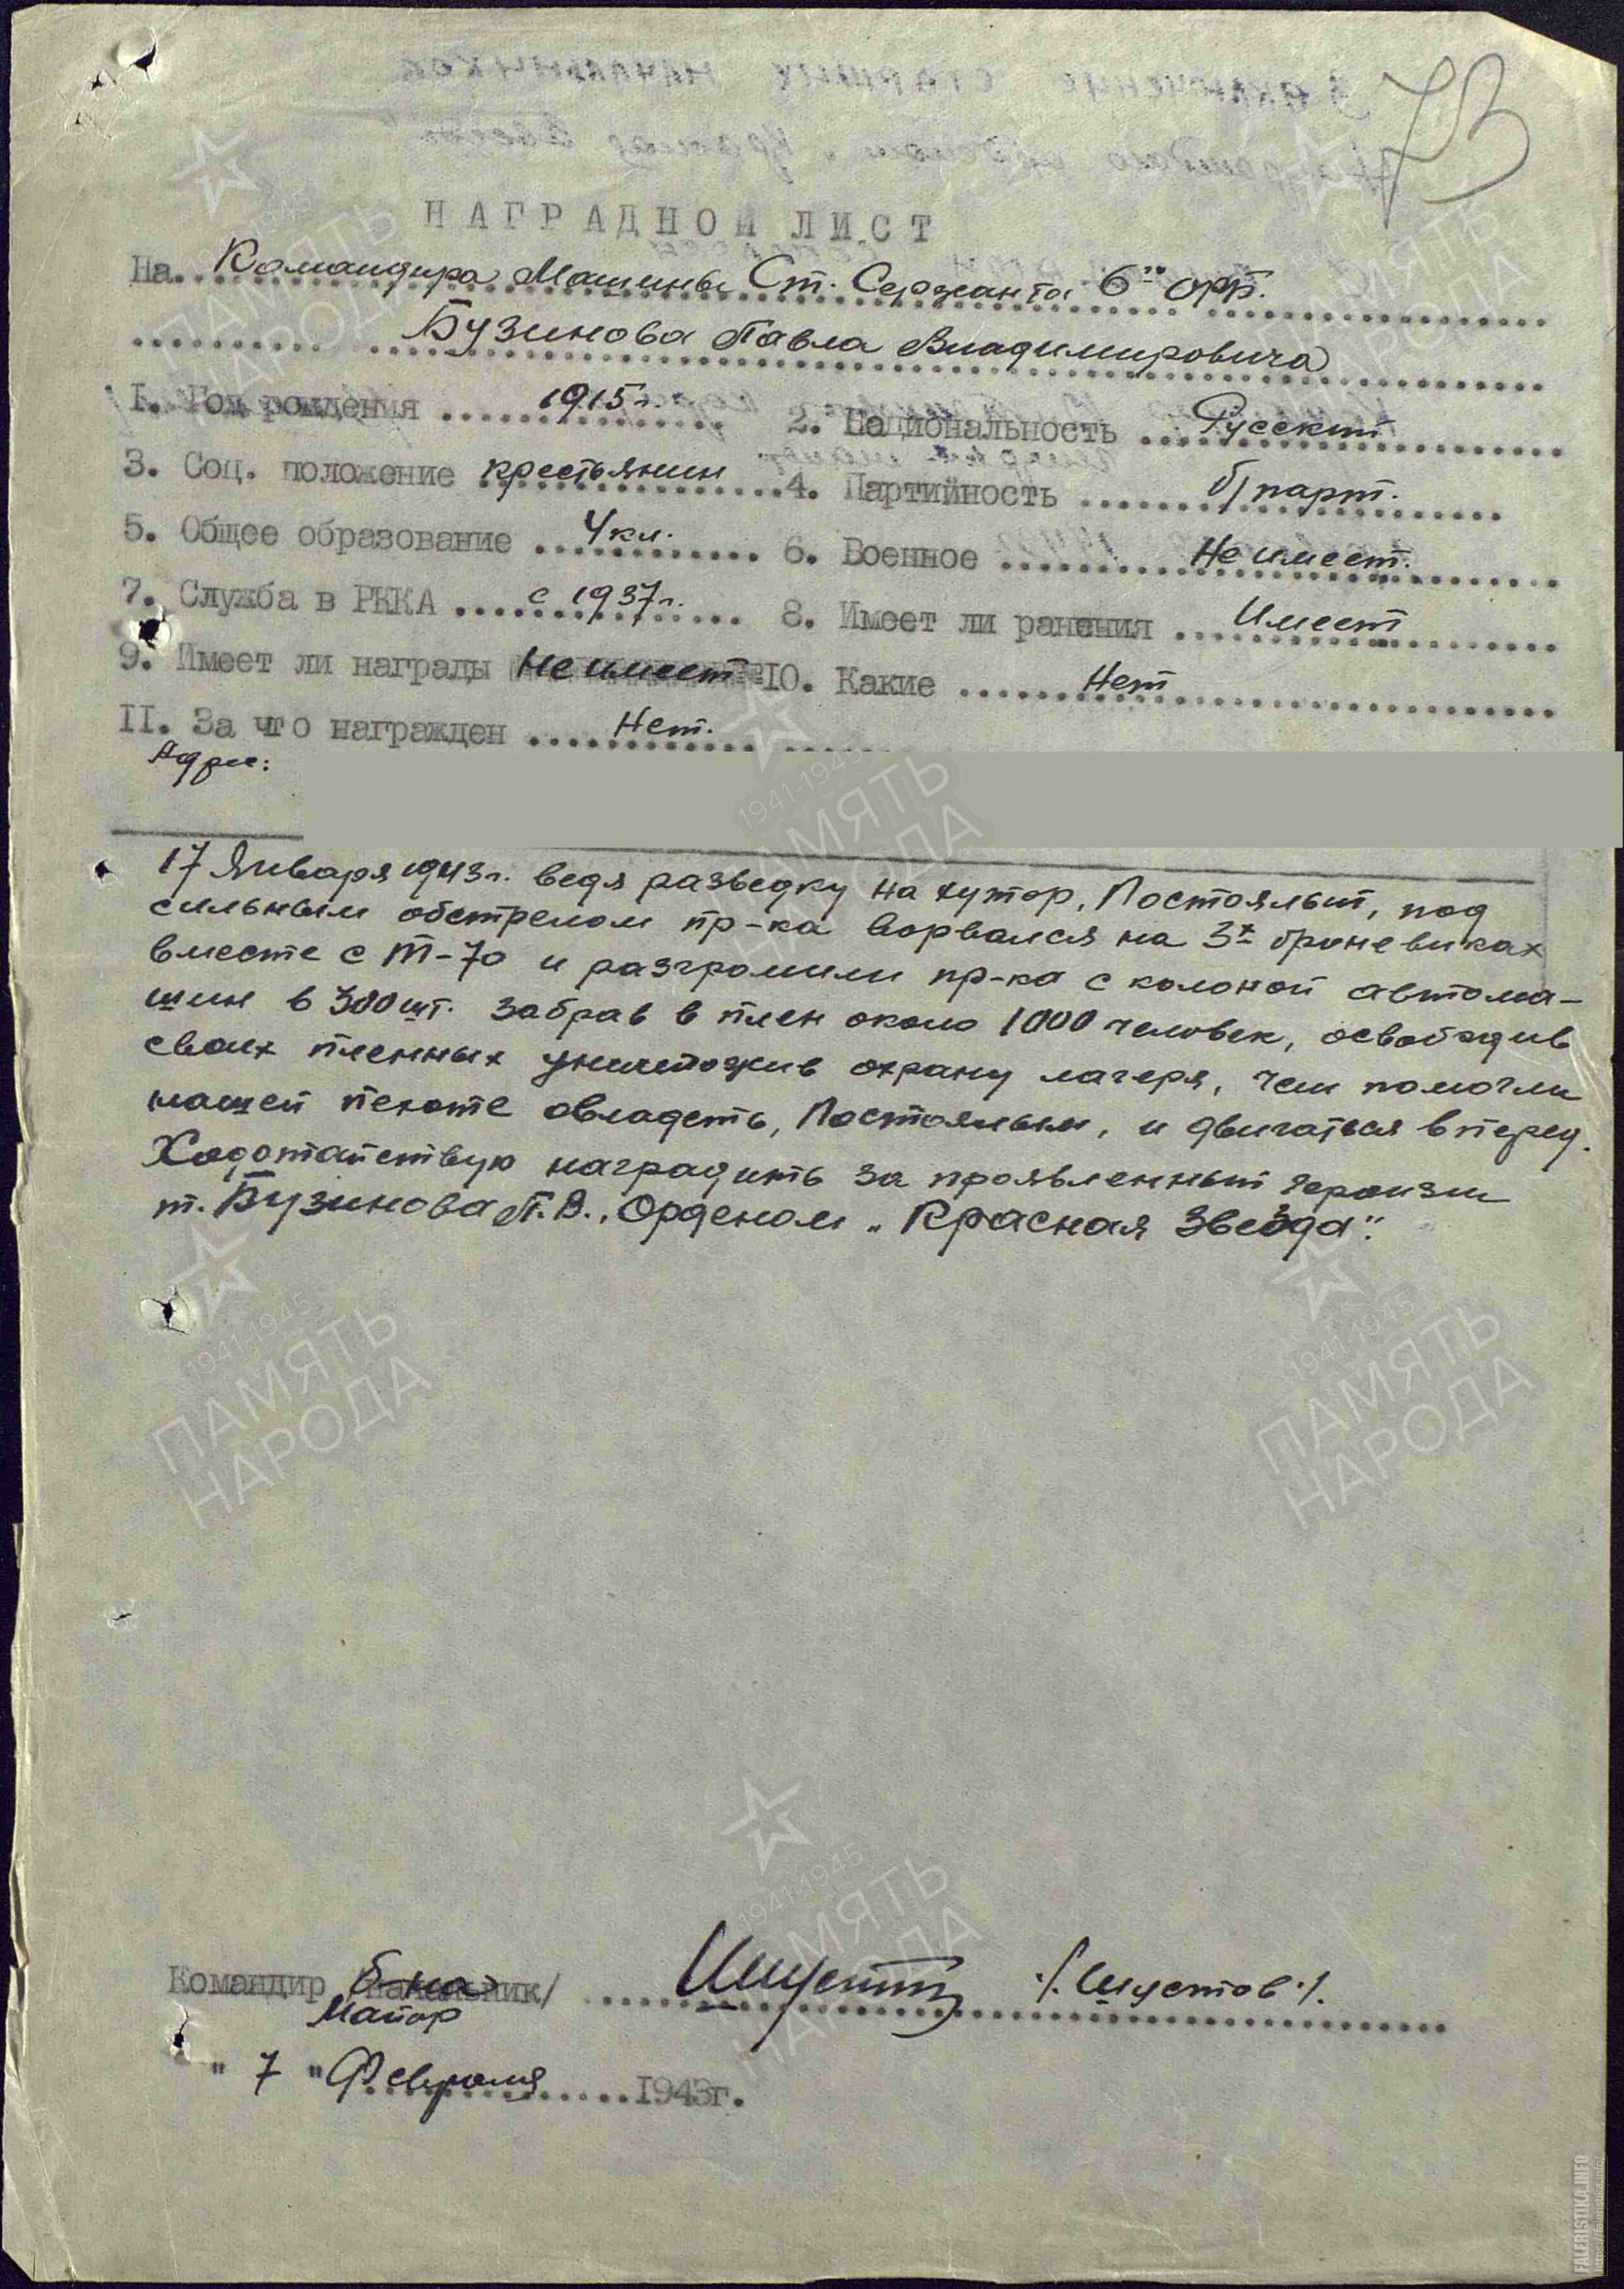 73
НАГРАДНОЙ ЛИСТ
На Командира Машины Ст. Сержанта 6го
Бузинова Павла Владимировича
I. Год рождения 1915г. 2. Национальность Русский
3. Соц. положение крестьянин 4. Партийность б/парт.
5. Общее образование 4 кл. 6. Военное Не имеет.
7. Служба в РККА с 1937г. 8. Имеет ли ранения Имеет
9. Имеет ли награды Не имеет 10. Какие Нет
II. За что награжден Нет.
Адрес:
17 Января 1943г. ведя разведку на хутор, Постоялый, под
сильным обстрелом пр-ка ворвался на 3х броневиках
вместе с Т-70 и разгромили пр-ка с колоной автома-
шин в 300 шт. забрав в плен около 1000 человек, освободив
своих пленных уничтожив охрану лагеря, чем помогли
нашей пехоте овладеть, Постоялым, и двигаться вперед.
Ходотайствую наградить за проявленный героизм
т. Бузинова П.В., Орденом „Красная Звезда".
Командир б-на
Майор
/Шустов/.
" 7 " Февраля 1943г.
1941-1945
ПАМЯТЬ
НАРОДА
FALERISTIKA.INFO